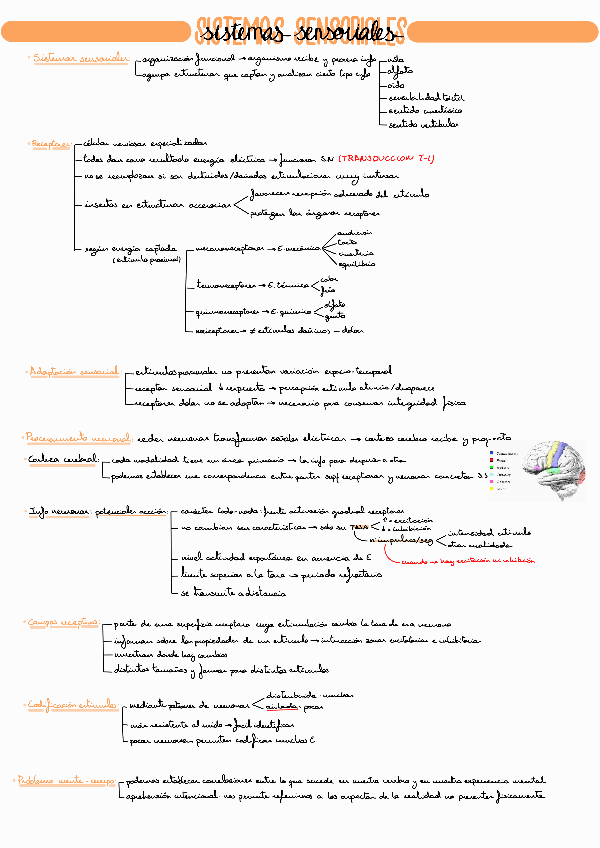 SISTEMAS SENSORIALES
sistemas sensoriales
· Sistemas sensoriales:
organización funcional → organismo recibe y procesa info
agrupa estructuras que captan y analizan cierto tipo info
vista
olfato
oído
sensibilidad táctil
sentido cinestésico
sentido vestibular
· Receptores:
células nerviosas especializadas
todos dan como resultado energía eléctrica → funcionan S.N (TRANSDUCCION T-1)
no se reemplazan si son destruidos/dañados estimulaciones muy intensas
insertos en estructuras accesorias
favorecen recepción adecuada del estímulo
protegen los órganos receptores
según energía captada
(estímulo proximal)
mecanorreceptores → E. mecánica
audición
tacto
cinestesia
equilibrio
termorreceptores → E. térmica
calor
frío
quimiorreceptores → E. química
olfato
gusto
nociceptores → ≠ estímulos dañinos – dolor
· Adaptación sensorial:
estímulos proximales no presentan variación espacio-temporal
receptor sensorial ↓ respuesta → percepción estímulo atenúa/desaparece
receptores dolor no se adaptan → necesario para conservar integridad física
· Procesamiento neuronal: redes neuronas transforman señales eléctricas → corteza cerebro recibe y proyecta
· Corteza cerebral:
cada modalidad tiene un área primaria → la info pasa después a otra
podemos establecer una correspondencia entre partes supf receptoras y neuronas concretas S.S
· Info neuronas: potenciales acción:
carácter todo-nada: frente activación gradual receptores
no cambian sus características → solo su TASA
↑ = excitación
↓ = inhibición
nº impulsos/seg
intensidad estímulo
otras cualidades
cuando no hay excitación ni inhibición
nivel actividad espontánea en ausencia de E
límite superior a la tasa → periodo refractario
se transmite a distancia
· Campos receptivos:
parte de una superficie receptora cuya estimulación cambia la tasa de esa neurona
informan sobre las propiedades de un estímulo → interacción zonas excitatorias e inhibitorias
muestran donde hay cambios
distintos tamaños y formas para distintos estímulos
· Codificación estímulos:
mediante patrones de neuronas
distribuida - muchas
aislada - pocas
más resistente al ruido → fácil identificar
pocas neuronas permiten codificar muchos E
· Problema mente-cuerpo:
podemos establecer correlaciones entre lo que sucede en nuestro cerebro y en nuestra experiencia mental
aprehensión intencional nos permite referirnos a los aspectos de la realidad no presentes físicamente